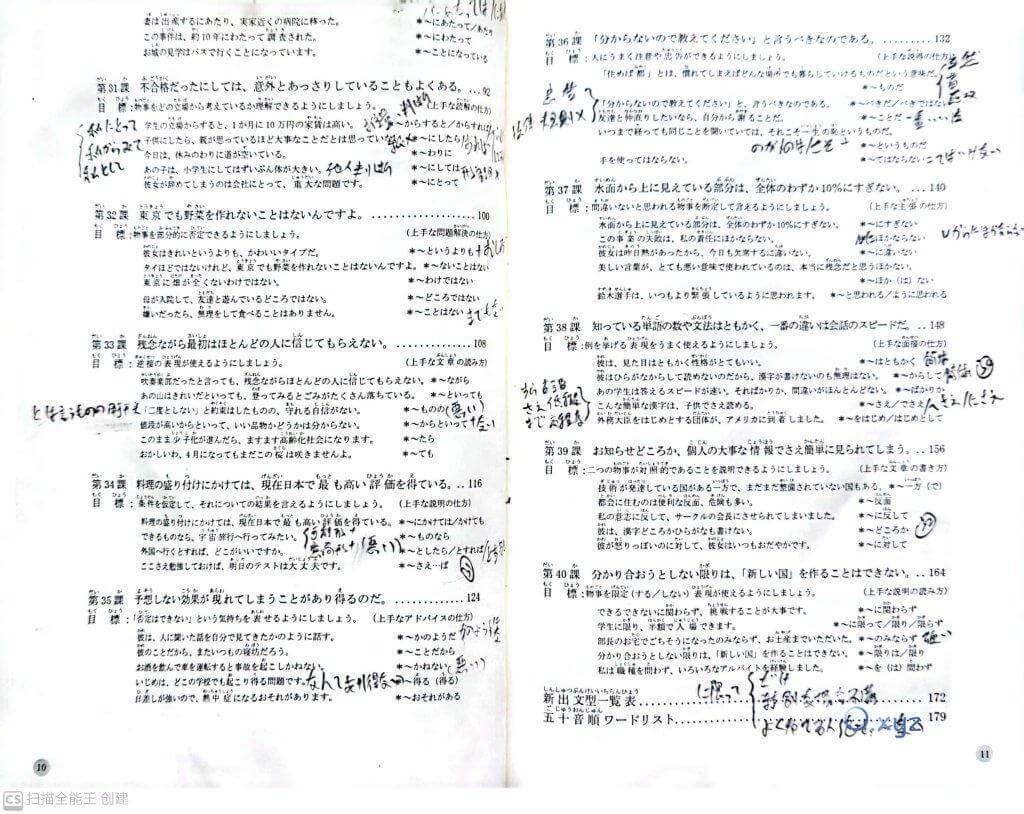 妻は出産するにあたり、実家近くの病院に移った。 *～にあたって／あたり
この事件は、約10年にわたって調査された。 *～にわたって
お城の見学はバスで行くことになっています。 *～ことになっている
第31課 不合格だったにしては、意外とあっさりしていることもよくある。..92
目 標:物事をどの立場から考えているか理解できるようにしましょう。 (上手な読解の仕方)
学生の立場からすると、1か月に10万円の家賃は高い。 *～からすると／からすれば
子供にしたら、親が思っているほど大事なことだとは思っていない *～にしたら
今日は、休みのわりに道が空いている。 *～わりに
あの子は、小学生にしてはずいぶん体が大きい。 *～にしては
彼女が辞めてしまうのは会社にとって、重大な問題です。 *～にとって
私にとって
私からみて
私として
第32課 東京でも野菜を作れないことはないんですよ。....................100
目 標:物事を部分的に否定できるようにしましょう。 (上手な問題解決の仕方)
彼女はきれいというよりも、かわいいタイプだ。 *～というよりも
タイほどではないけれど、東京でも野菜を作れないことはないんですよ。 *～ないことはない
東京に畑が全くないわけではない。 *～わけではない
母が入院して、友達と遊んでいるどころではない。 *～どころではない
嫌いだったら、無理をして食べることはありません。 *～ことはない
第33課 残念ながら最初はほとんどの人に信じてもらえない。..........108
目 標:逆接の表現が使えるようにしましょう。 (上手な文章の読み方)
吹奏楽部だったと言っても、残念ながらほとんどの人に信じてもらえない。 *～ながら
あの山はきれいだといっても、登ってみるとごみがたくさん落ちている。 *～といっても
「二度としない」と約束はしたものの、守れる自信がない。 *～ものの
値段が高いからといって、いい品物かどうかは分からない。 *～からといって
このまま少子化が進んだら、ますます高齢化社会になります。 *～たら
おかしいわ、4月になってもまだこの桜は咲きませんよ。 *～ても
第34課 料理の盛り付けにかけては、現在日本で最も高い評価を得ている。..116
目 標:条件を仮定して、それについての結果を言えるようにしましょう。 (上手な説明の仕方)
料理の盛り付けにかけては、現在日本で最も高い評価を得ている。 *～にかけては／かけても
できるものなら、宇宙旅行へ行ってみたい。 *～ものなら
外国へ行くとすれば、どこがいいですか。 *～としたら／とすれば
ここさえ勉強しておけば、明日のテストは大丈夫です。 *～さえ…ば
第35課 予想しない効果が現れてしまうことがあり得るのだ。..............124
目 標:「否定はできない」という気持ちを表せるようにしましょう。 (上手なアドバイスの仕方)
彼は、人に聞いた話を自分で見てきたかのように話す。 *～かのようだ
彼のことだから、またいつもの寝坊だろう。 *～ことだから
お酒を飲んで車を運転すると事故を起こしかねない。 *～かねない
いじめは、どこの学校でも起こり得る問題です。 *～得る（得る）
日差しが強いので、熱中症になるおそれがあります。 *～おそれがある
10
第36課 「分からないので教えてください」と言うべきなのである。..........132
目 標:人にうまく注意や忠告ができるようにしましょう。 (上手な説得の仕方)
「住めば都」とは、慣れてしまえばどんな場所でも暮らしていけるものだという意味だ。
*～ものだ
「分からないので教えてください」と、言うべきなのである。 *～べきだ／べきではない
友達と仲直りしたいなら、自分から謝ることだ。 *～ことだ
いつまで経っても同じことを聞いていては、それこそ一生の恥というものだ。
*～というものだ
手を使ってはならない。 *～てはならない
第37課 水面から上に見えている部分は、全体のわずか10%にすぎない。..140
目 標:間違いないと思われる物事を断定して言えるようにしましょう。 (上手な主張の仕方)
水面から上に見えている部分は、全体のわずか10%にすぎない。 *～にすぎない
この事業の失敗は、私の責任にほかならない。 *～にほかならない
彼女は昨日熱があったから、今日も欠席するに違いない。 *～に違いない
美しい言葉が、とても悪い意味で使われているのは、本当に残念だと思うほかない。
*～ほか（は）ない
鈴木選手は、いつもより緊張しているように思われます。 *～と思われる／ように思われる
第38課 知っている単語の数や文法はともかく、一番の違いは会話のスピードだ。..148
目 標:例を挙げる表現をうまく使えるようにしましょう。 (上手な面接の仕方)
彼は、見た目はともかく性格がとてもいい。 *～はともかく
彼はひらがなからして読めないのだから、漢字が書けないのも無理はない。 *～からして
あの学生は答えるスピードが速い。そればかりか、間違いがほとんどない。 *～ばかりか
こんな簡単な漢字は、子供でさえ読める。 *～さえ／でさえ
外務大臣をはじめとする団体が、アメリカに到着しました。 *～をはじめ／はじめとして
第39課 お知らせどころか、個人の大事な情報でさえ簡単に見られてしまう。..156
目 標:二つの物事が対照的であることを説明できるようにしましょう。 (上手な文章の書き方)
技術が発達している国がある一方で、まだまだ整備されていない国もある。 *～一方（で）
都会に住むのは便利な反面、危険も多い。 *～反面
私の意志に反して、サークルの会長にさせられてしまいました。 *～に反して
彼は、漢字どころかひらがなも書けない。 *～どころか
彼が怒りっぽいのに対して、彼女はいつもおだやかです。 *～に対して
第40課 分かり合おうとしない限りは、「新しい国」を作ることはできない。..164
目 標:物事を限定(する/しない)表現が使えるようにしましょう。 (上手な説明の読み方)
できるできないに関わらず、挑戦することが大事です。 *～に関わらず
学生に限り、半額で入場できます。 *～に限って／限り
部長のお宅でごちそうになったのみならず、お土産までいただいた。 *～のみならず
分かり合おうとしない限りは、「新しい国」を作ることはできない。 *～限りは／限り
私は職種を問わず、いろいろなアルバイトを経験しました。 *～を（は）問わず
に限って
新出文型一覧表.......................................172
五十音順ワードリスト..................................179
11
CS 扫描全能王 创建